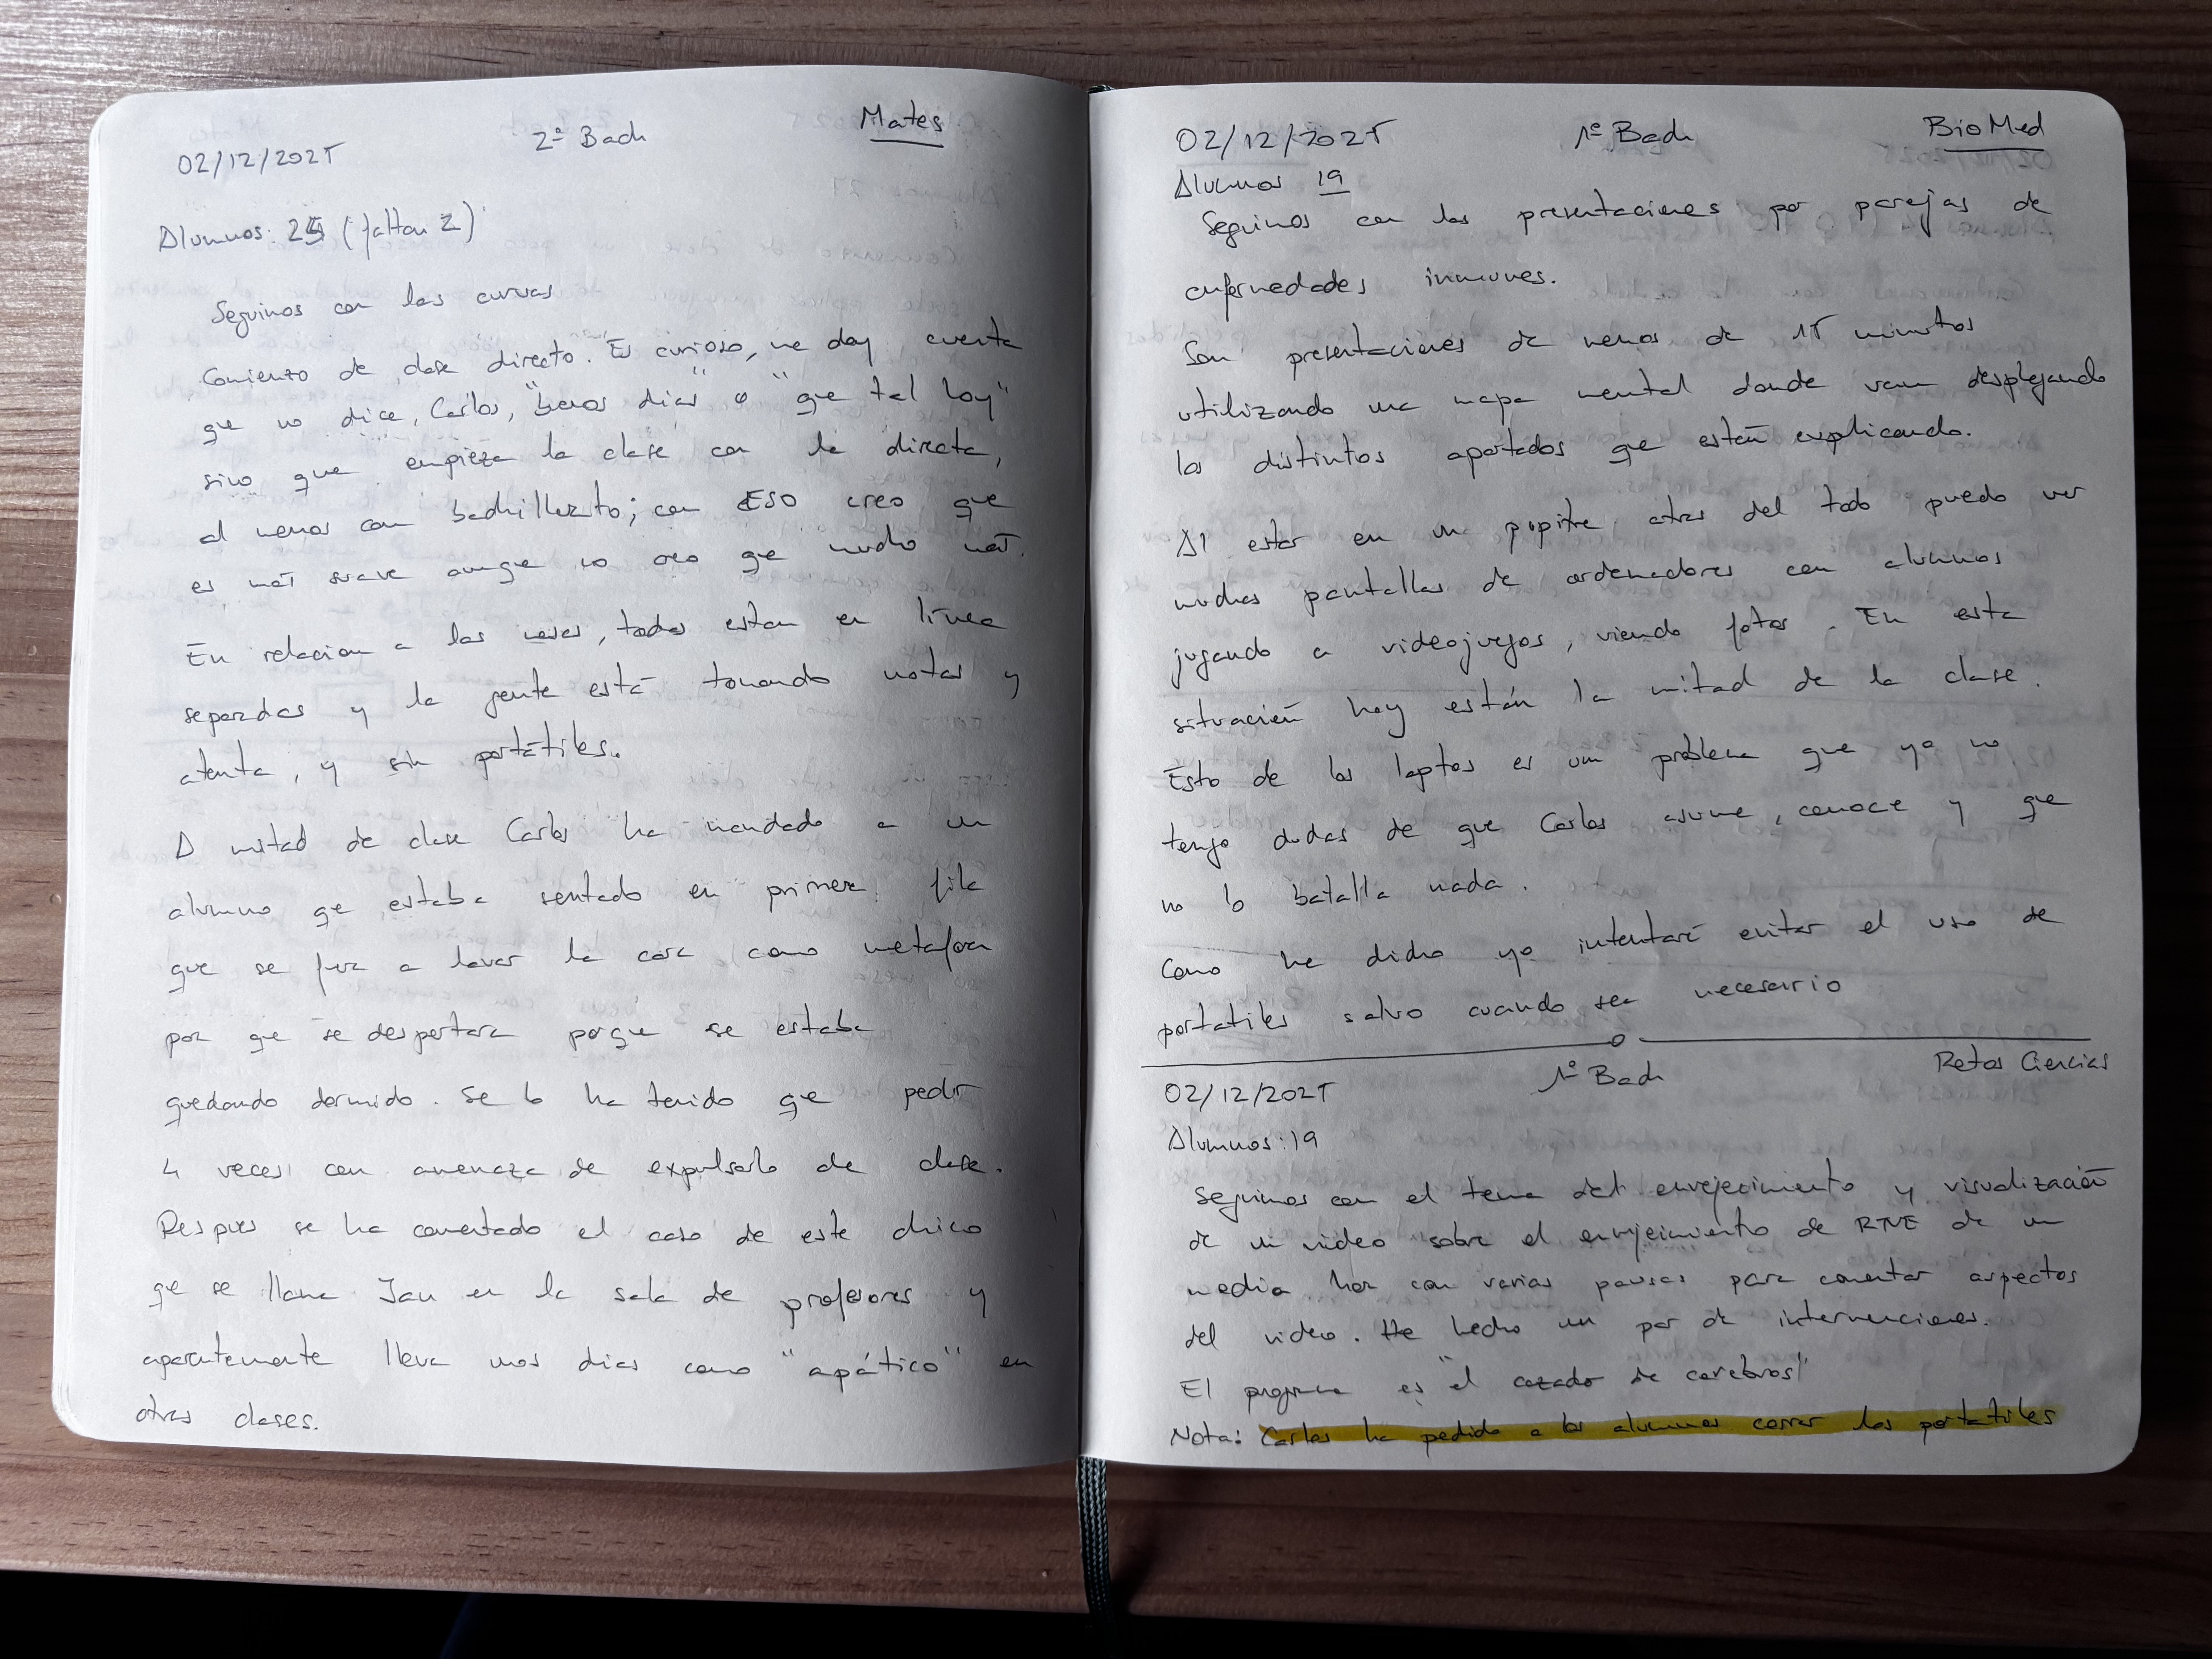 02/12/2025 2º Bach Mates
Alumnos: 25 (faltan 2)
Seguimos con las curvas
Comienzo de clase directo. Es curioso, me doy cuenta
que no dice, Carlos, "buenos dias" o "que tal hoy"
sino que empieza la clase con la directa,
al menos con bachillerato; con ESO creo que
es más suave aunque no creo que mucho más.
En relacion a las mesas, todas estan en línea
separadas y la gente está tomando notas y
atenta, y sin portátiles.
A mitad de clase Carlos ha mandado a un
alumno que estaba sentado en primera fila
que se fuera a lavar la cara como metafora
por que se despertara porque se estaba
quedando dormido. Se lo ha tenido que pedir
4 veces con amenaza de expulsarlo de clase.
Despues se ha comentado el caso de este chico
que se llama Jan en la sala de profesores y
aparentemente lleva unos dias como "apático" en
otras clases.
02/12/2025 1º Bach BioMed
Alumnos 19
Seguimos con las presentaciones por parejas de
enfermedades inmunes.
Son presentaciones de menos de 15 minutos
utilizando un mapa mental donde van desplegando
los distintos apartados que están explicando.
Al estar en un pupitre atras del todo puedo ver
muchas pantallas de ordenadores con alumnos
jugando a videojuegos, viendo fotos. En esta
situación hoy están la mitad de la clase.
Esto de los laptos es un problema que ya no
tengo dudas de que Carlos asume, conoce y que
no lo batalla nada.
Como he dicho yo intentaré evitar el uso de
portatiles salvo cuando sea necesario
02/12/2025 1º Bach Retos Ciencias
Alumnos: 19
Seguimos con el tema del envejecimiento y visualización
de un video sobre el envejecimiento de RTVE de un
media hora con varias pausas para comentar aspectos
del video. He hecho un par de intervenciones.
El programa es "el cazado de cerebros"
Nota: Carlos ha pedido a los alumnos cerrar los portatiles